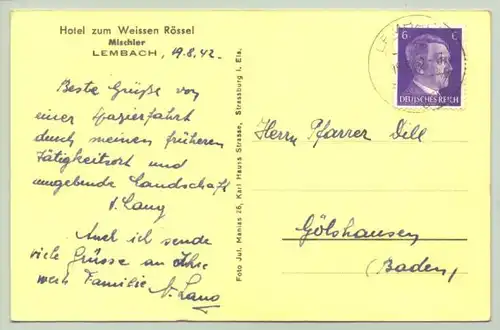 Hotel zum Weissen Rössel
Mischler
LEMBACH, 19.8.42.
Beste Grüße von
einer Spazierfahrt
durch meinen früheren
Tätigkeitsort und
umgebende Landschaft
A. Lang
Auch ich sende
viele Grüsse an Ihre
werte Familie A. Lang
Foto Jul. Manias 26, Karl Hauss Strasse, Strassburg i. Els.
6
DEUTSCHES REICH
Herrn Pfarrer Dill
Gölshausen
(Baden)